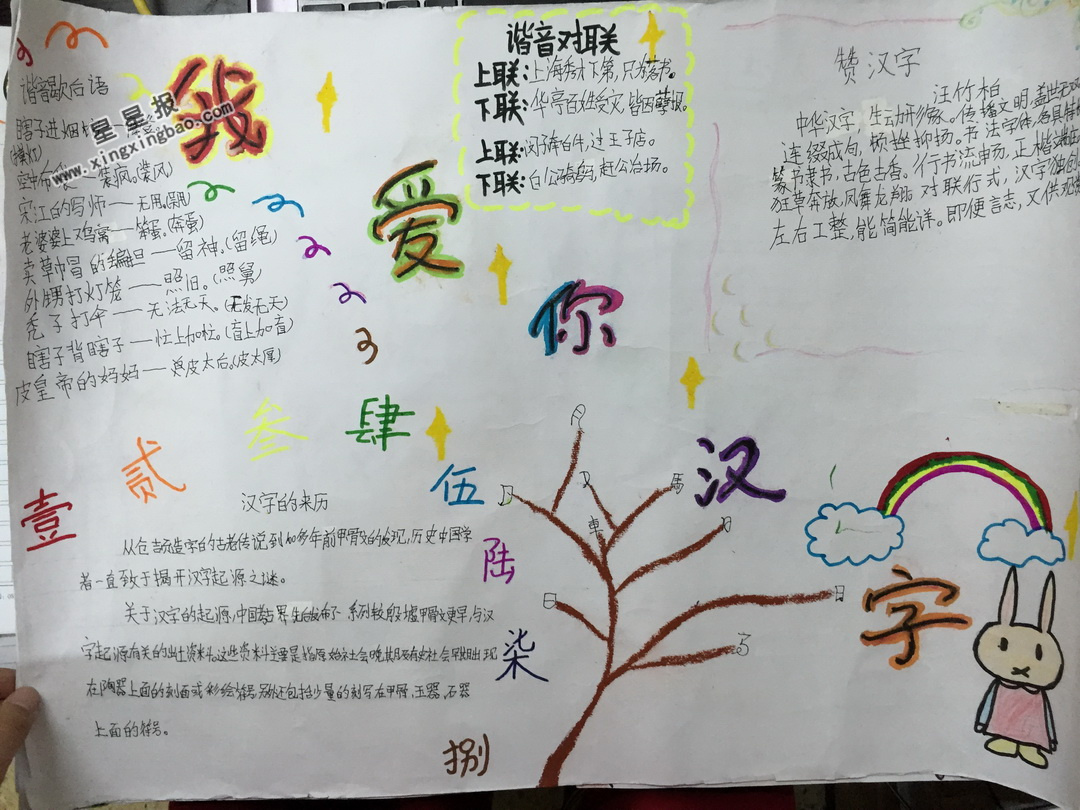 谐音歇后语
瞎子进烟
装疯。(裝风)
宋江的写师——无用。
老婆婆上鸡窝——笨蛋。(奔蛋)
卖草帽的编担——留神。(留绳)
外甥打灯笼——照旧。(照舅)
秃子打伞——无法无天。(无发无天)
瞎子背瞎子——忙上加忙。(盲上加盲)
皮皇帝的妈妈——皮太后。(皮太厚)
星星报
www.xingxingbao.com
我
爱
你
汉
字
谐音对联
上联:上海秀才下第,只为落书。
下联:华亭百姓受灾,皆因孽报。
上联:闵子牵白牛,过王子店。
下联:白公骑马,赶公冶场。
赞汉字
汪竹柏
中华汉字,生动形象。传播文明,盖世
连缀成句,顿挫抑扬。书法字体,各具
篆书隶书,古色古香。行书流畅,正楷
狂草奔放,凤舞龙翔。对联行式,汉字独创
左右工整,能简能详。即便言志,又供
壹
贰
叁
肆
伍
陆
柒
捌
汉字的来历
从仓吉氏造字的古老传说到100多年前甲骨文的发现,历史中国学
者一直致于揭开汉字起源之谜。
关于汉字的起源,中国 界先后发布了一系列较殷墟甲骨文更早、与汉
字起源有关的出土资料。这些资料主要是指原始社会晚期及有史社会早期出现
在陶器上面的刻画或彩绘符号,另外还包括少量的刻写在甲骨、玉器、石器
上面的符号。
月
又
馬
車
日